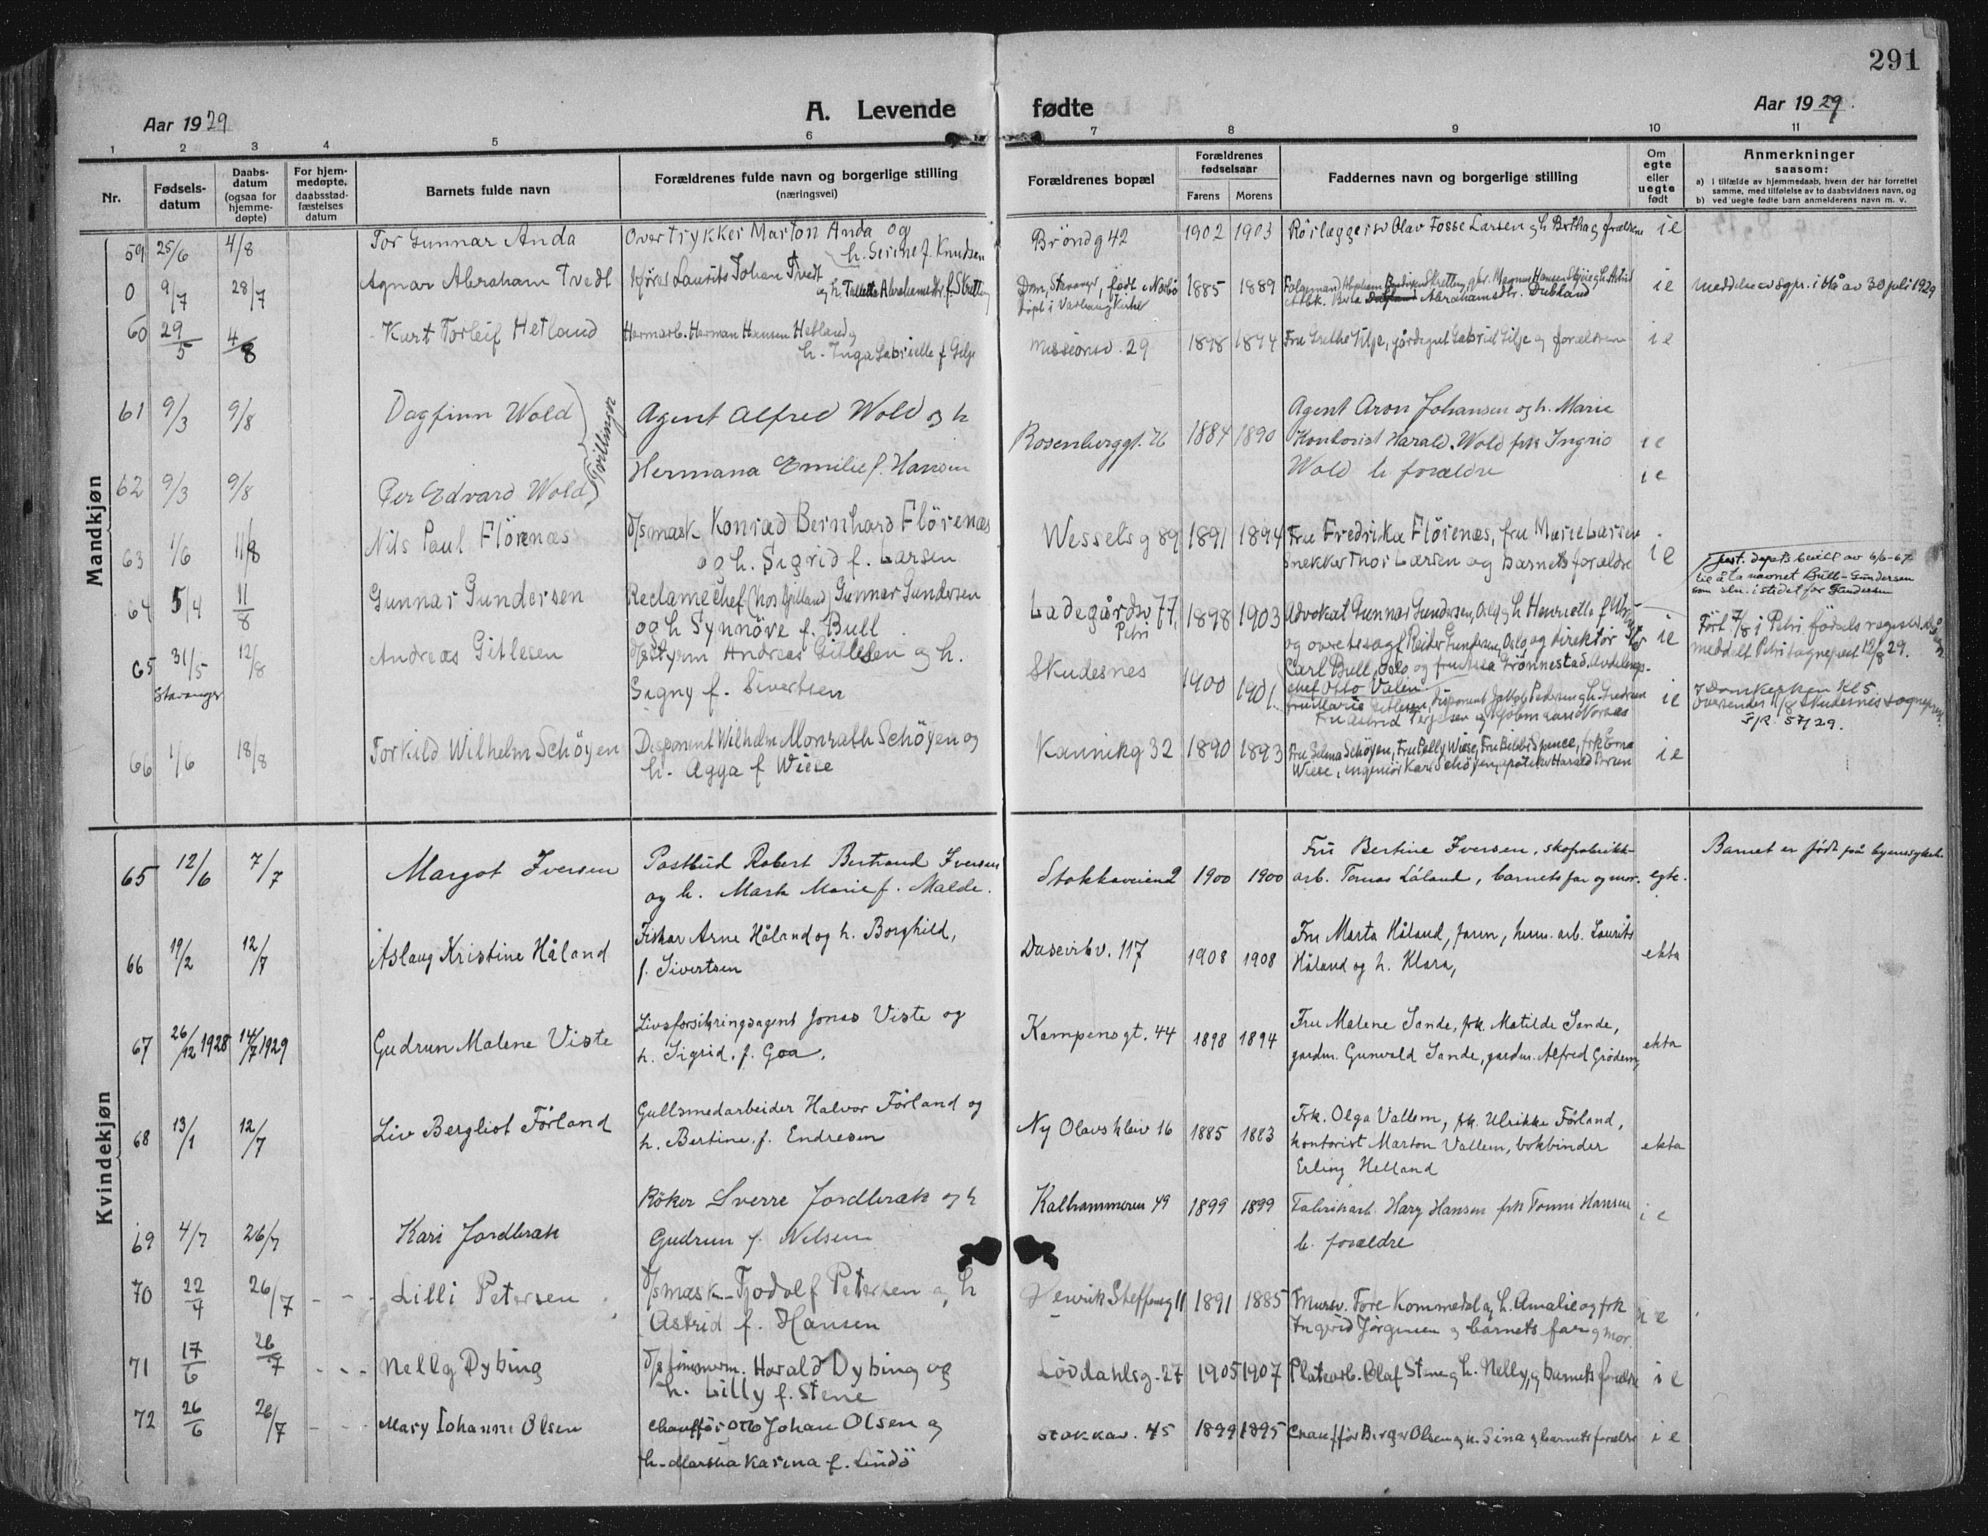 291
Aar 1929
A. Levende fødte
Aar 1929.
1 2 3 4 5 6 7 8 9 10 11
Nr.
Fødsels-
datum
Daabs-
datum
(ogsaa for
hjemme-
døpte)
For hjem-
medøpte,
daabsstad-
fæstelses
datum
Barnets fulde navn
Forældrenes fulde navn og borgerlige stilling
(næringsvei)
Forældrenes bopæl
Forældrenes
fødselsaar
Farens Morens
Faddernes navn og borgerlige stilling
Om
egte
eller
uegte
født
Anmerkninger
saasom:
a) i tilfælde av hjemmedaab, hvem der har forrettet
samme, med tilføielse av to daabsvidners navn, og
b) ved uegte fødte barn anmelderens navn m. v.
Mandkjøn
59 25/6 4/8 Tor Gunnar Anda Overtrykker Marton Anda og Brøndg 42 1902 1903 Rørlæggersv Olav Fosse Larsen og h Bertha og forældrene i e
h. Serine f. Knudsen
0 9/7 28/7 Agnar Abraham Tvedt Laurits Johan Tvedt 1885 1889 i e meddelt av sgpr. i Hå av 30 juli 1929
60 29/5 4/8 Kurt Torleif Hetland Hermarb. Herman Hansen Hetland og
h. Inga Gabrielle f. Gilje Missionsv. 29 1898 1894 Fru Grethe Gilje, gårdsgut Gabriel Gilje og forældrene i e
61 9/3 9/8 Dagfinn Wold Agent Alfred Wold og h Agent Aron Johansen og h. Marie
Tvillinger
Rosenberggt. 76 1884 1890 Kontorist Harald Wold frk Ingrid i e
62 9/3 9/8 Per Edvard Wold Hermana Emilie f. Hansen Wold b forældre i e
63 1/6 11/8 Nils Paul Flörenæs D/smask Konrad Bernhard Flörenæs Wesselsg 89 1891 1894 Fru Fredrika Flörenæs, fru Marie Larsen
og h. Sigrid f. Larsen Snekker Thor Larsen og barnets forældre i e
64 5/4 11/8 Gunnar Gundersen Reclamechef Gunnar Gundersen Ladegårdsv 77, 1898 1903 Advokat Gunnar Gundersen, Oslo og h Henriette f.
og h Synnöve f. Bull Petri i e
Just. depts bevill av 6/6-67
til å ta navnet Bull-Gundersen
som sln. istedet for Gundersen
Ført 7/8 i Petri fødselsregister
meddelt Petri sogneprest 12/8 29.
65 31/5 12/8 Andreas Gitlesen D/styrm Andreas Gitlesen og h. Skudesnes 1900 1901
Stavanger Signy f. Sivertsen
Carl Bull, Oslo og
chef Otto Valen
i e
I Domkirken Kl 5
Oversendt 11/8 Skudesnes sogneprest
57/29.
66 1/6 18/8 Torkild Wilhelm Schöyen Disponent Wilhelm Monrath Schöyen og Kannikg 32 1890 1893 Fru Selma Schöyen, Fru Pelly Wiese, Fru Bibbi Spence, frk Erna
h. Agga f Wiese Wiese, ingeniör Kare Schöyen, apoteker Harald i e
Kvindekjøn
65 12/6 7/7 Margot Iversen Postbud Robert Bertrand Iversen Stokkaveien 2 1900 1900 Fru Bertine Iversen, skofabrikk-
og h. Marta Marie f. Malde. arb. Tomas Låland, barnets far og mor. egte. Barnet er født på byens sykeh.
66 19/2 12/7 Åslaug Kristine Håland Fisker Arne Håland og h. Borghild, Dusevikv. 117 1908 1908 Fru Marta Håland, faren, herm. arb. Laurits
f. Sivertsen Håland og h. Klara, ekta
67 26/12 1928 14/7 1929 Gudrun Malene Viste Livsforsikringsagent Jonas Viste og Kampensgt. 44 1898 1894 Fru Malene Sande, frk. Matilde Sande,
h. Sigrid. f. Goa. gardm. Gunvald Sande, gardm. Alfred Grödem, ekta
68 13/1 12/7 Liv Bergliot Förland Gullsmedarbeider Halvor Förland og Ny Olavskleiv 16 1885 1883 Frk. Olga Vallem, frk. Ulrikke Förland,
h. Bertine. f. Endresen kontorist Marton Vallem, bokbinder ekta
Erling Helland
69 4/7 26/7 Kari Jordbræk Röker Sverre Jordbræk og h Kalhammeren 49 1899 1899 Fabrikarb. Hary Hansen frk Tomi Hansen i e
Gudrun f. Nilsen b. forældre
70 22/4 26/7 Lilli Petersen D/smask Tjodolf Petersen og h Henrik Steffensg 11 1891 1885 Mursv. Tore Kommedal og h. Amalie og frk
Astrid f. Hansen Ingrid Jörgensen og barnets far og mor. i e
71 17/6 26/7 Nelly Dybing Harald Dybing og Lövdahlsg. 27 1905 1907 Platearb. Olaf Stene og h. Nelly, og barnets forældre i e
h. Lilly f. Stene
72 26/6 26/7 Mary Johanne Olsen Chauffør Otto Johan Olsen og Stokkav. 45 1899 1895 Chauffør Berger Olsen og h. Sina og barnets forældre i e
h. Martha Karina f. Lindö